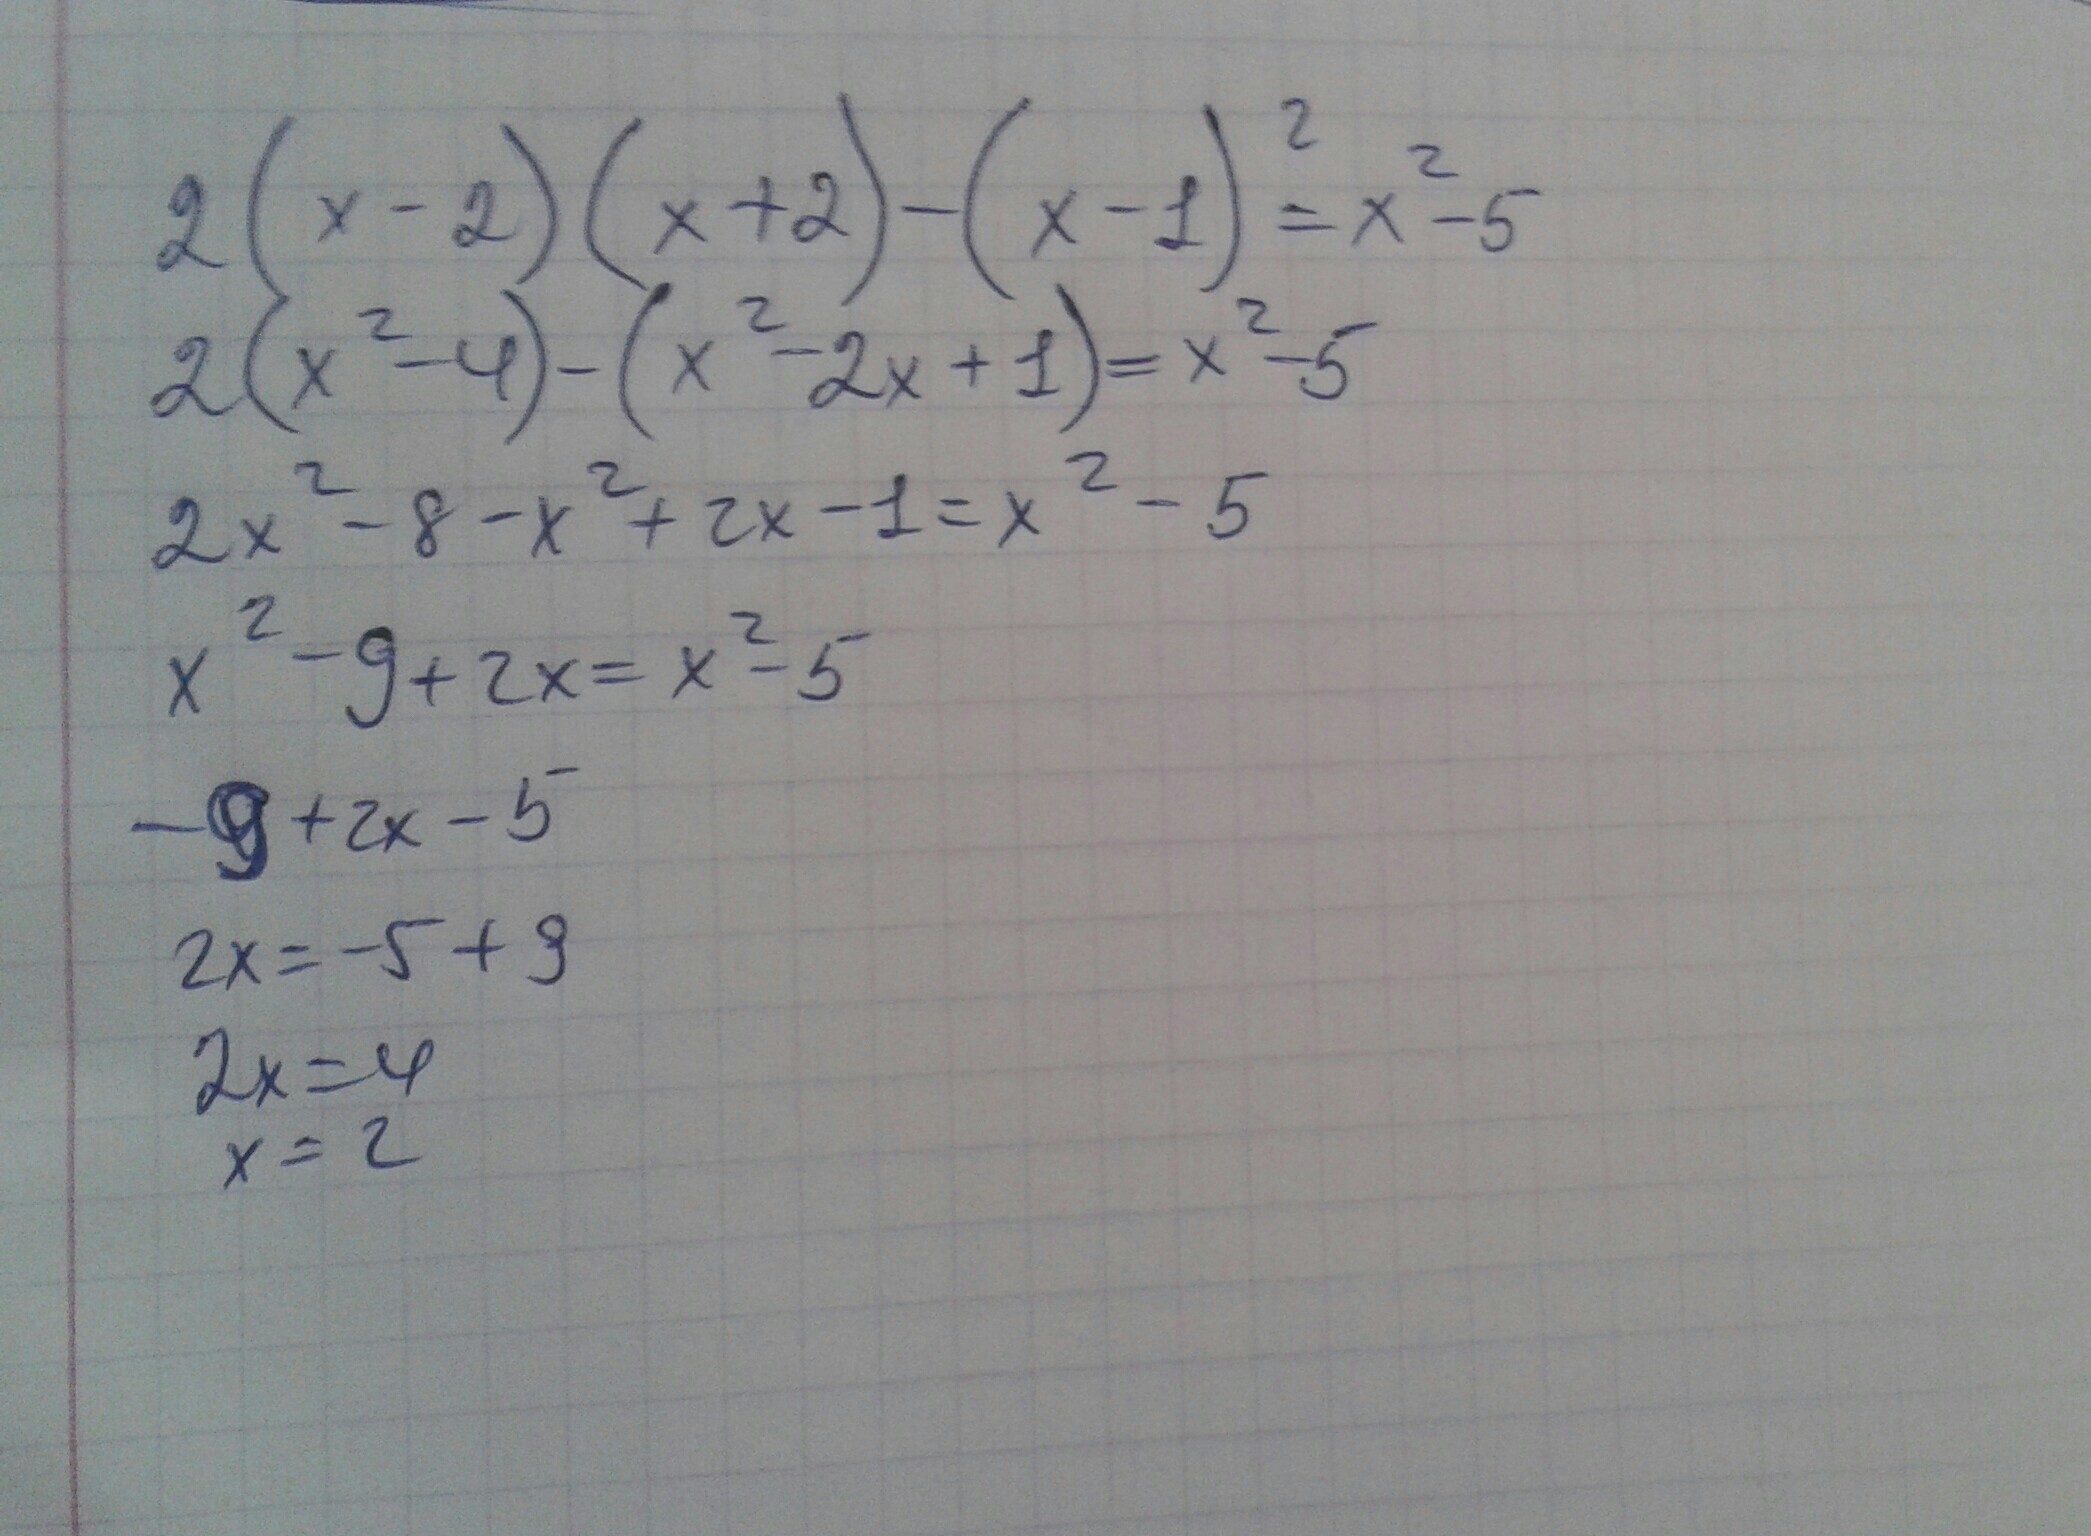 2(x-2)(x+2)-(x-1)²=x²-5
2(x²-4)-(x²-2x+1)=x²-5
2x²-8-x²+2x-1=x²-5
x²-9+2x=x²-5
-9+2x-5
2x=-5+9
2x=4
x=2